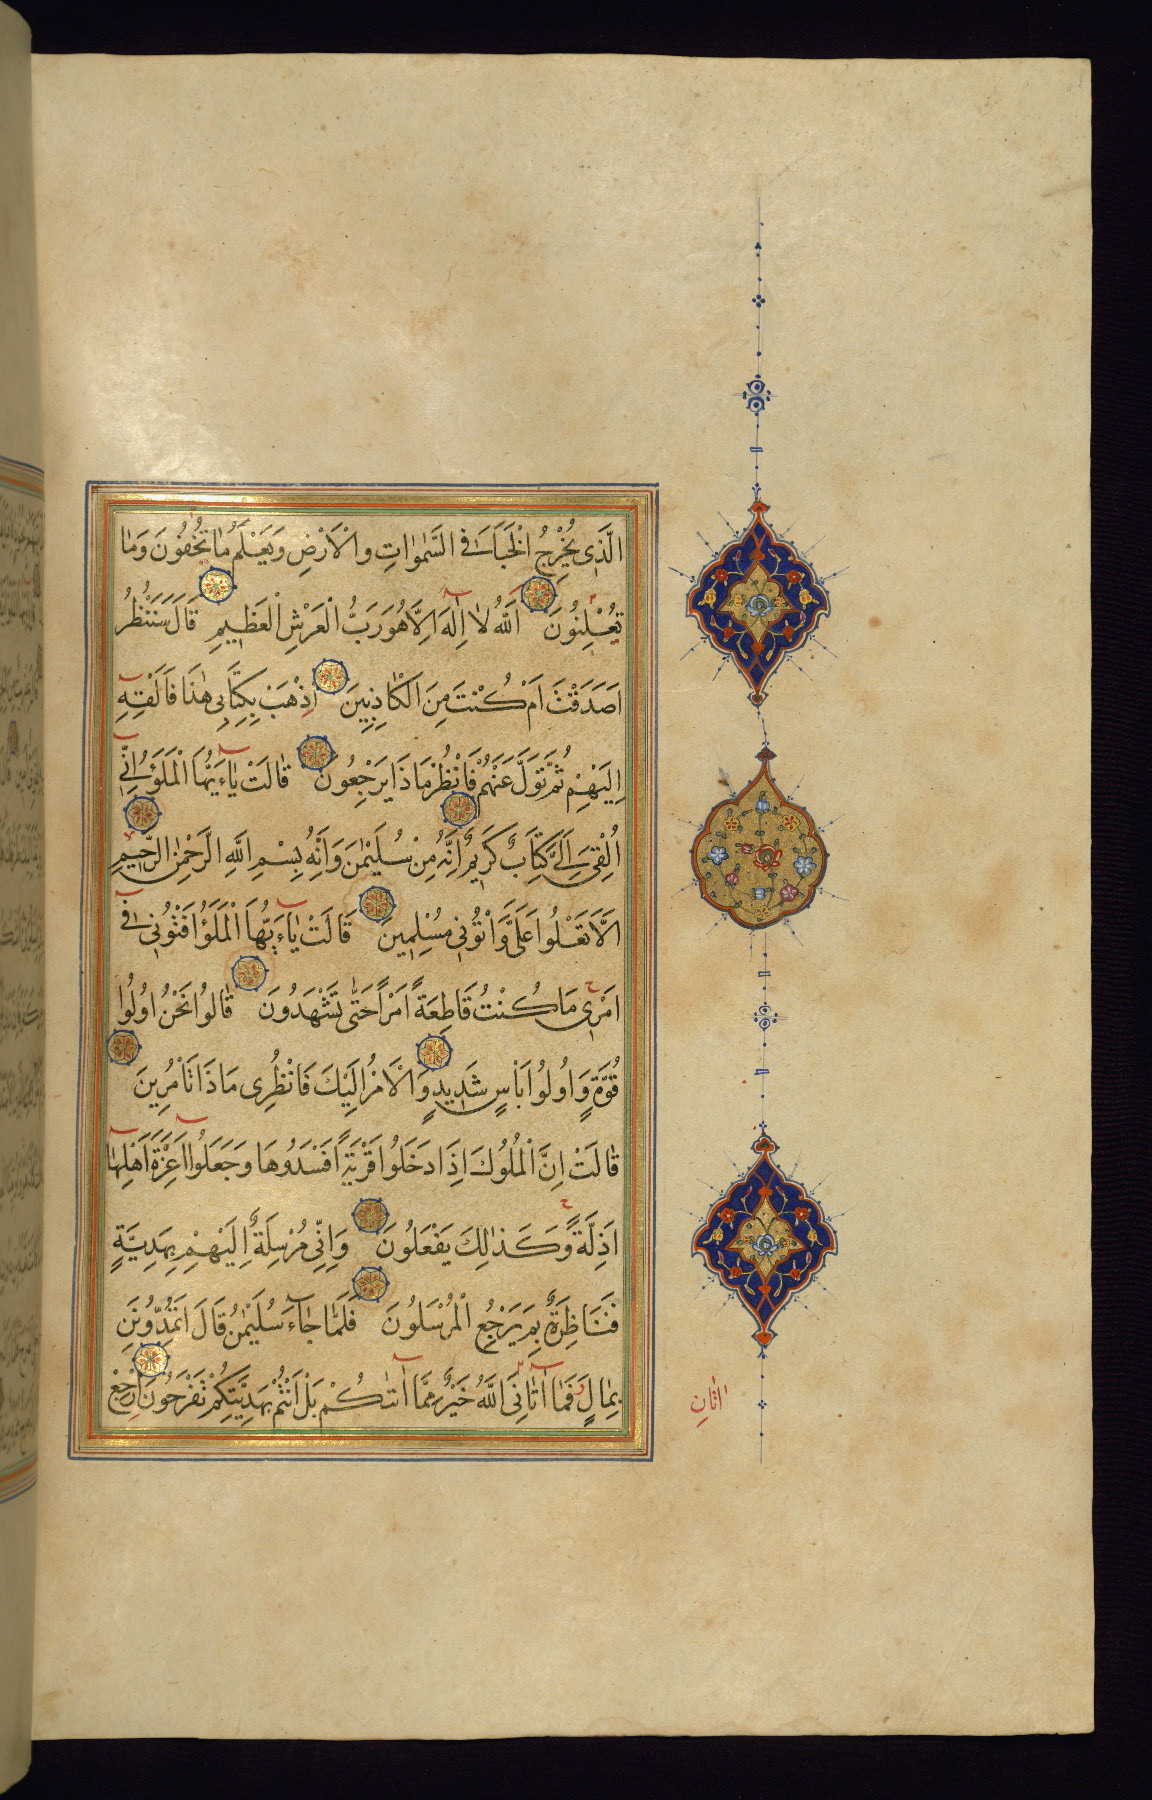 الَّذِي يُخْرِجُ الْخَبَاَ فِي السَّمٰوَاتِ وَالْاَرْضِ وَيَعْلَمُ مَا تُخْفُونَ وَمَا
تُعْلِنُونَ اَللّٰهُ لَا اِلٰهَ اِلَّا هُوَ رَبُّ الْعَرْشِ الْعَظِيمِ قَالَ سَنَنْظُرُ
اَصَدَقْتَ اَمْ كُنْتَ مِنَ الْكَاذِبِينَ اِذْهَبْ بِكِتَابِي هٰذَا فَاَلْقِهِ
اِلَيْهِمْ ثُمَّ تَوَلَّ عَنْهُمْ فَانْظُرْ مَاذَا يَرْجِعُونَ قَالَتْ يَاءَيُّهَا الْمَلَؤُا اِنِّي
اُلْقِيَ اِلَيَّ كِتَابٌ كَرِيمٌ اِنَّهُ مِنْ سُلَيْمٰنَ وَاِنَّهُ بِسْمِ اللّٰهِ الرَّحْمٰنِ الرَّحِيمِ
اَلَّا تَعْلُوا عَلَيَّ وَاْتُونِي مُسْلِمِينَ قَالَتْ يَاءَيُّهَا الْمَلَؤُا اَفْتُونِي فِي
اَمْرِي مَا كُنْتُ قَاطِعَةً اَمْرًا حَتّٰى تَشْهَدُونَ قَالُوا نَحْنُ اُولُوا
قُوَّةٍ وَاُولُوا بَاْسٍ شَدِيدٍ وَالْاَمْرُ اِلَيْكَ فَانْظُرِي مَاذَا تَاْمُرِينَ
قَالَتْ اِنَّ الْمُلُوكَ اِذَا دَخَلُوا قَرْيَةً اَفْسَدُوهَا وَجَعَلُوا اَعِزَّةَ اَهْلِهَا
اَذِلَّةً وَكَذٰلِكَ يَفْعَلُونَ وَاِنِّي مُرْسِلَةٌ اِلَيْهِمْ بِهَدِيَّةٍ
فَنَاظِرَةٌ بِمَ يَرْجِعُ الْمُرْسَلُونَ فَلَمَّا جَاءَ سُلَيْمٰنَ قَالَ اَتُمِدُّونَنِ
بِمَالٍ فَمَا اٰتَانِيَ اللّٰهُ خَيْرٌ مِمَّا اٰتٰىكُمْ بَلْ اَنْتُمْ بِهَدِيَّتِكُمْ تَفْرَحُونَ اِرْجِعْ
اتٰانِ